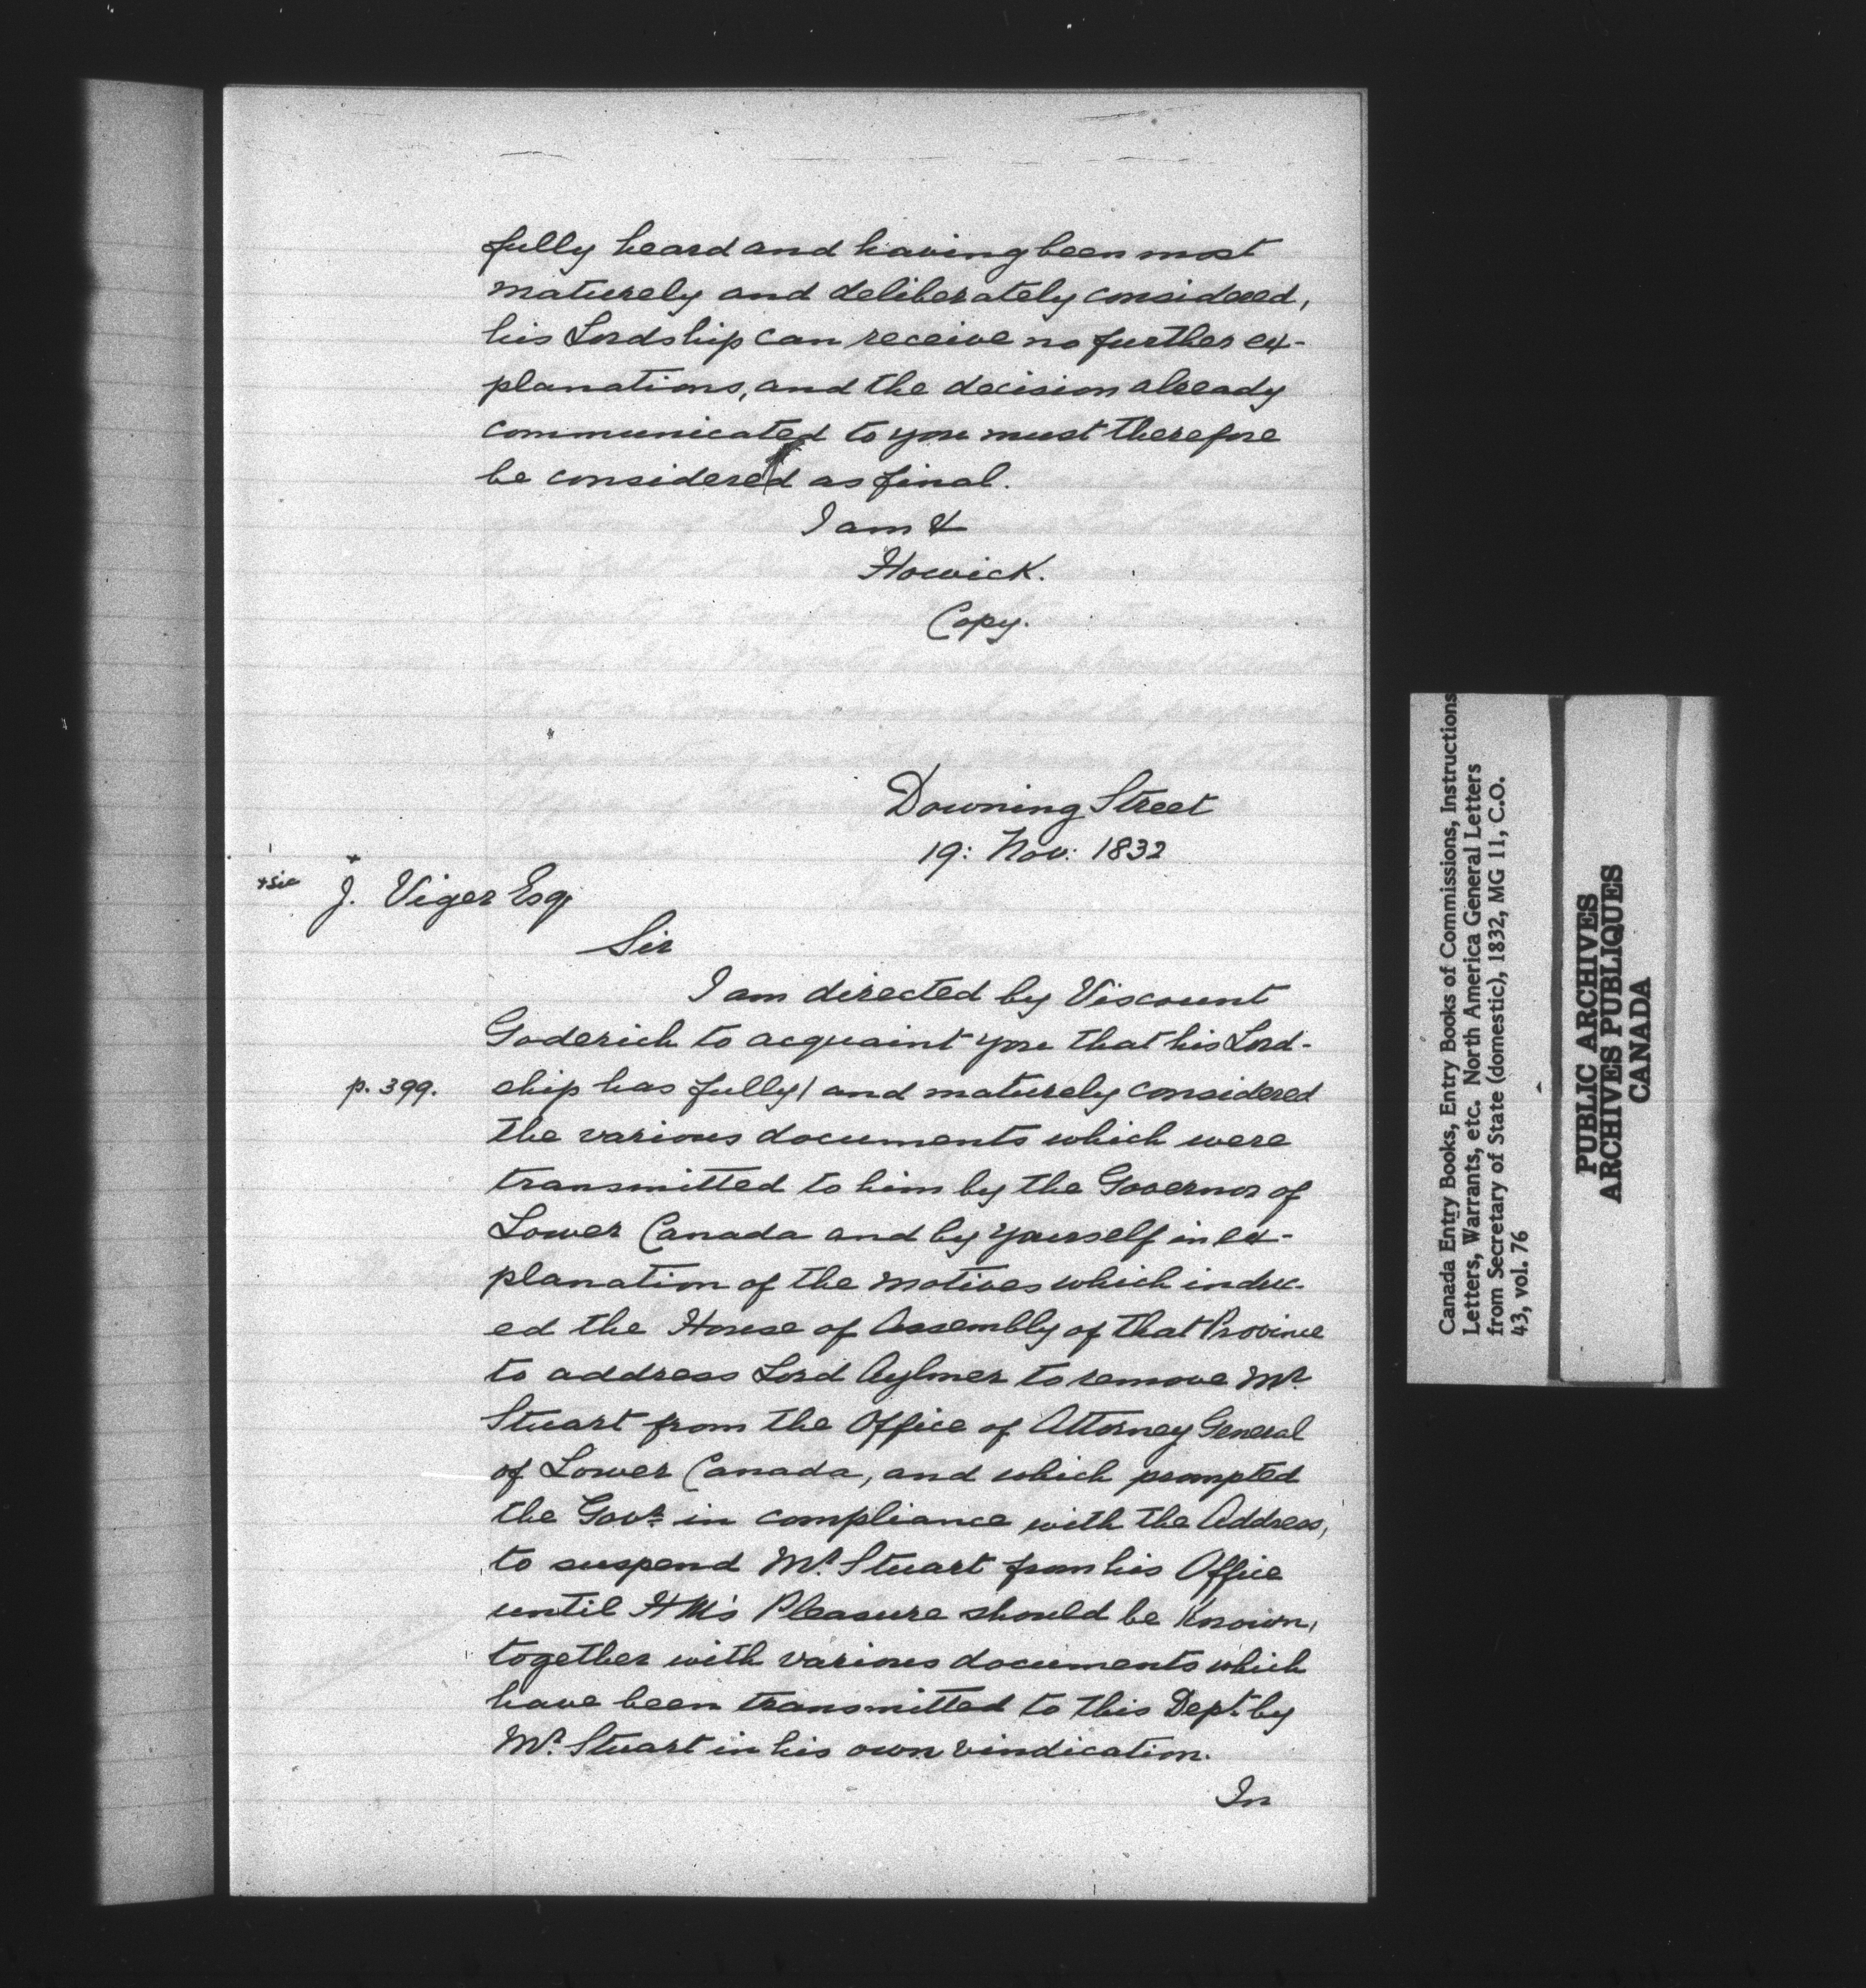 fully heard and having been most
maturely and deliberately considered,
his Lordship can receive no further ex-
planations, and the decision already
communicated to you must therefore
be considered as final.
I am &
Howick.
Copy.
Downing Street
19: Nov: 1832
+sic
+
J. Viger Esq.
Sir
I am directed by Viscount
Goderich to acquaint you that his Lord-
p. 399.
ship has fully/ and maturely considered
the various documents which were
transmitted to him by the Governor of
Lower Canada and by yourself in ex-
planation of the motives which induc-
ed the House of Assembly of that Province
to address Lord Aylmer to remove Mr.
Stuart from the Office of Attorney General
of Lower Canada, and which prompted
the Govr. in compliance with the Address,
to suspend Mr. Stuart from his Office
until HM's Pleasure should be known,
together with various documents which
have been transmitted to this Dept. by
Mr. Stuart in his own vindication.
In
Canada Entry Books, Entry Books of Commissions, Instructions
Letters, Warrants, etc. North America General Letters
from Secretary of State (domestic), 1832, MG 11, C.O.
43, vol. 76
PUBLIC ARCHIVES
ARCHIVES PUBLIQUES
CANADA